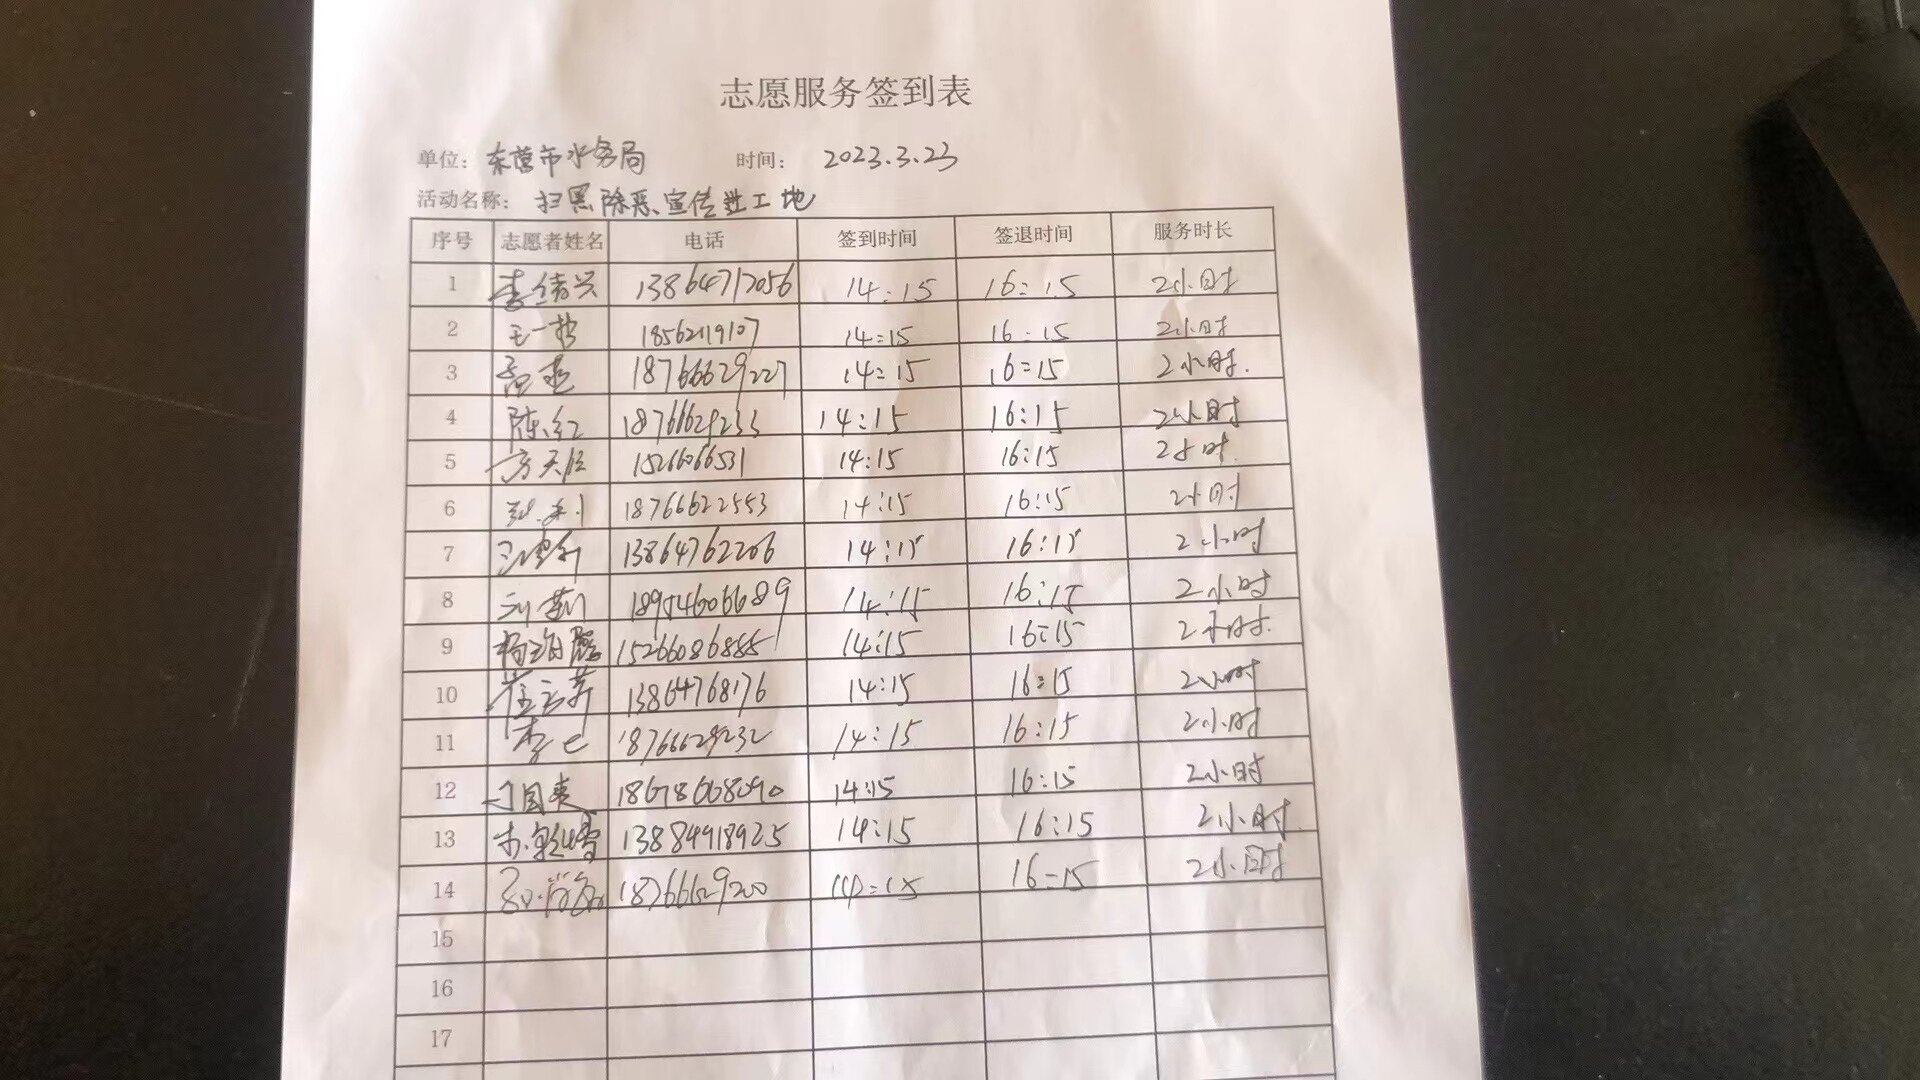 志愿服务签到表
单位：东营市水务局 时间：2023.3.23
活动名称：扫黑除恶宣传进工地
序号 志愿者姓名 电话 签到时间 签退时间 服务时长
1 李绪兴 13864712056 14:15 16:15 2小时
2 王一 18562119107 14:15 16:15 2小时
3 18766629227 14:15 16:15 2小时.
4 陈红 18766629233 14:15 16:15 2小时
5 15266066531 14:15 16:15 2小时.
6 18766622553 14:15 16:15 2小时
7 13864762206 14:15 16:15 2小时
8 18954606689 14:15 16:15 2小时
9 15266086885 14:15 16:15 2小时.
10 13864768176 14:15 16:15 2小时
11 18766629232 14:15 16:15 2小时
12 14:15 16:15 2小时
13 13884918925 14:15 16:15 2小时.
14 18766629200 14:15 16:15 2小时
15
16
17